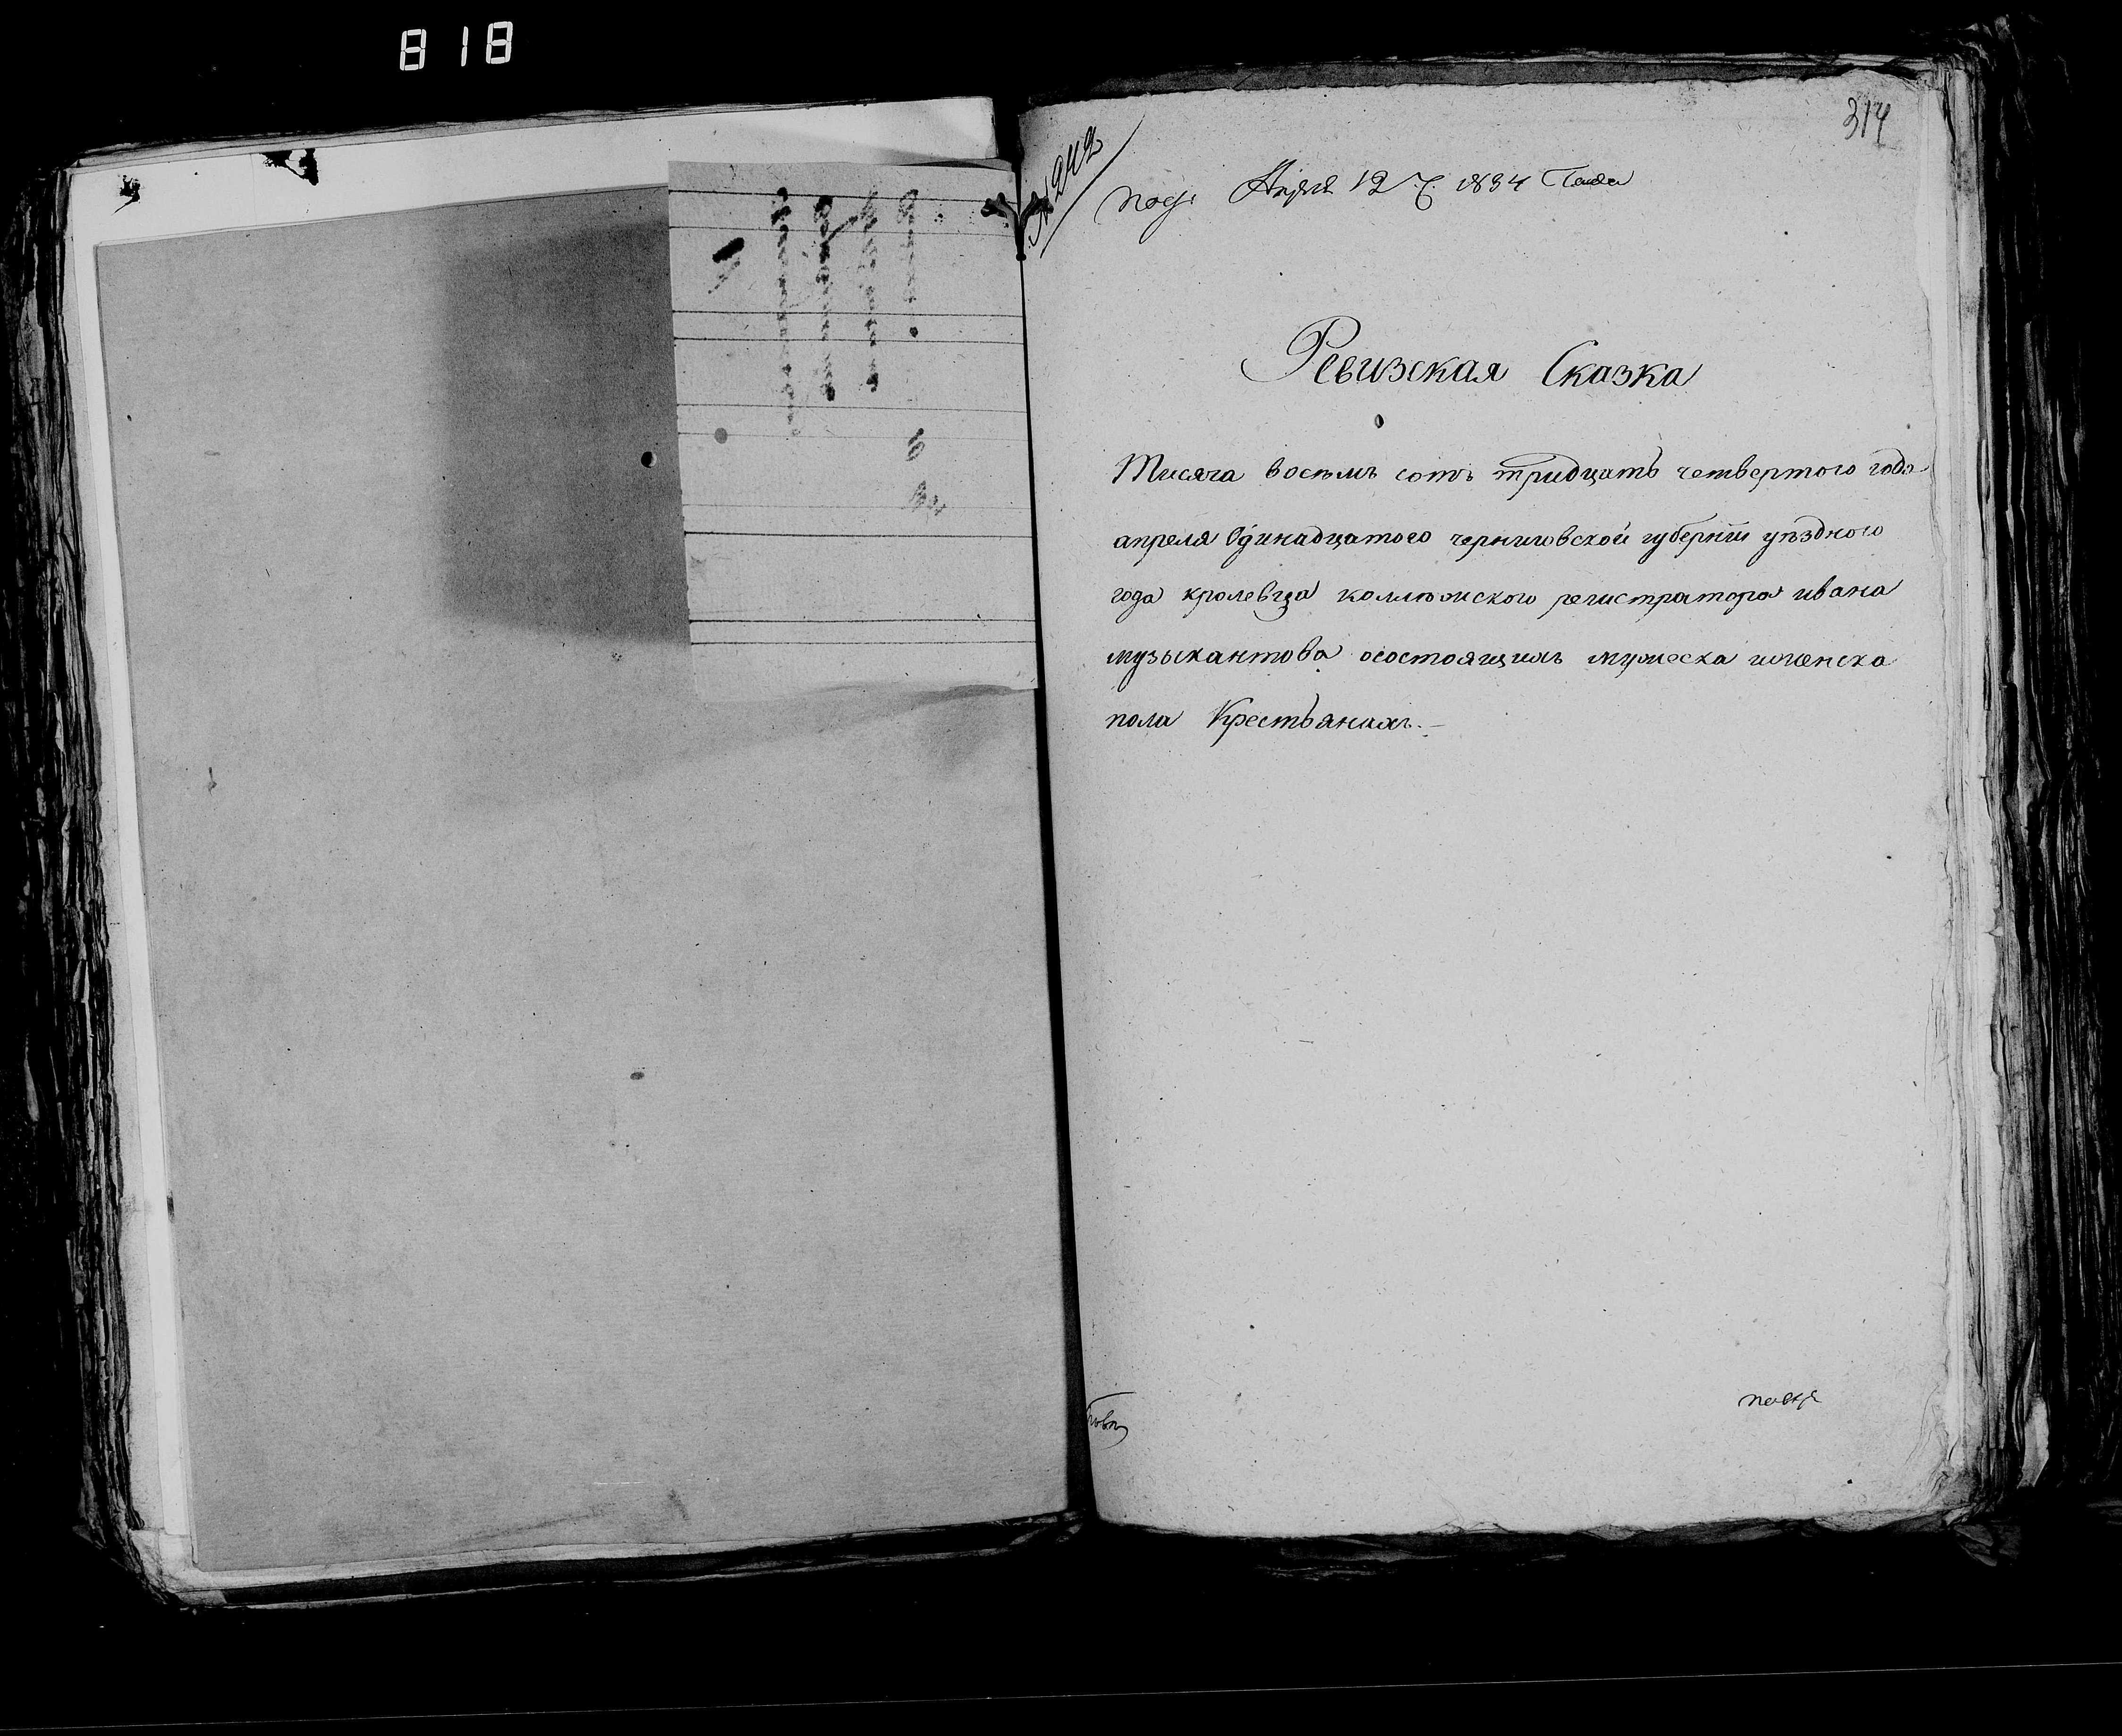 818
314
№ 242
Апреля 12 ч. 1834 Года
Ревизская Сказка
Тисяча восемъ сотъ тридцатъ четвертого года
апреля Одинадцатого черниговской губернии уездного
года кролевца коллежского регистратора ивана
музыкантова осостоящихъ мужеска иженска
пола Крестьянахъ.—